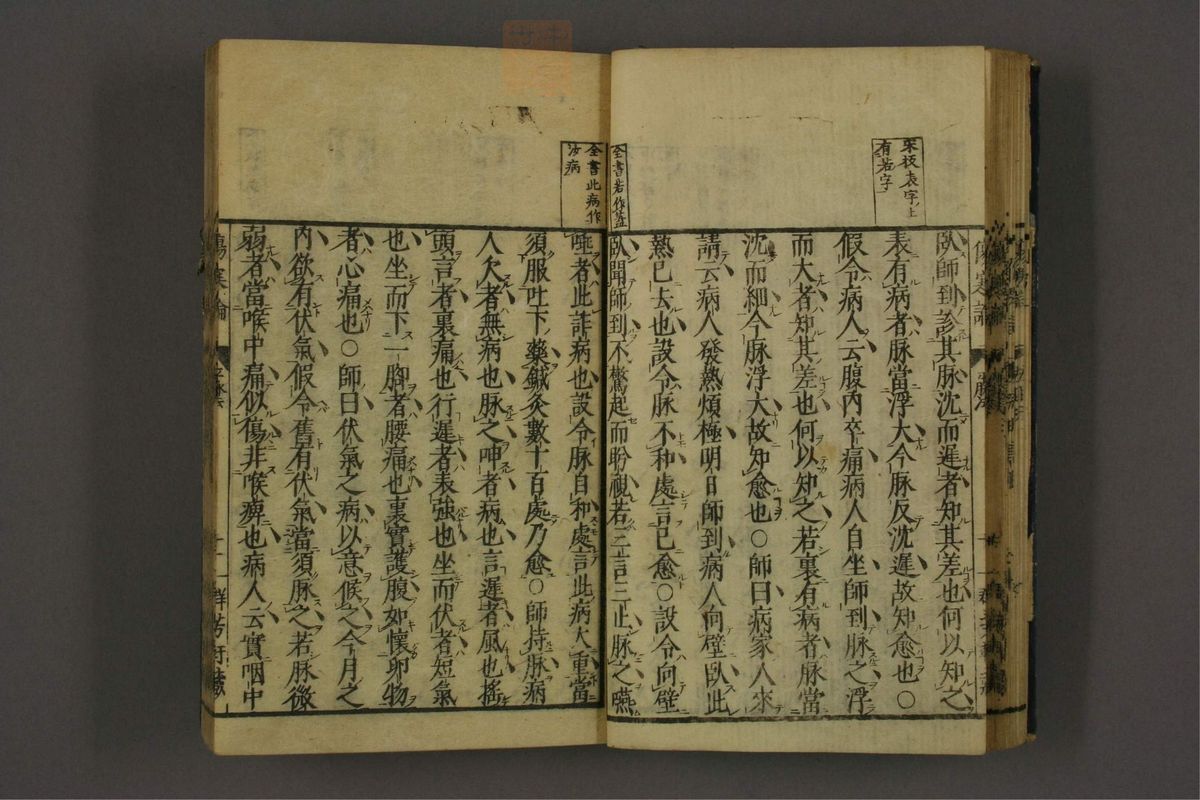 宋板表字ノ上
有若字
臥師到診其脉沈而遲者知其差也何以知之
表有病者脉當浮大今脉反沈遲故知愈也○
假令病人云腹內卒痛病人自坐師到脉之浮
而大者知其差也何以知之若裏有病者脉當
沈而細今脉浮大故知愈也○師曰病家人來
請云病人發熱煩極明日師到病人向壁臥此
熱已去也設令脉不和處言已愈○設令向壁
全書若作蓋
臥聞師到不驚起而盻視若三言三止脉之嚥
全書此病作
汝病
唾者此詐病也設令脉自和處言此病大重當
須服吐下藥鍼灸數十百處乃愈○師持脉病
人欠者無病也脉之呻者病也言遲者風也搖
頭言者裏痛也行遲者表強也坐而伏者短氣
也坐而下一脚者腰痛也裏實護腹如懷卵物
者心痛也○師曰伏氣之病以意候之今月之
內欲有伏氣假令舊有伏氣當須脉之若脉微
弱者當喉中痛似傷非喉痺也病人云實咽中
傷寒論